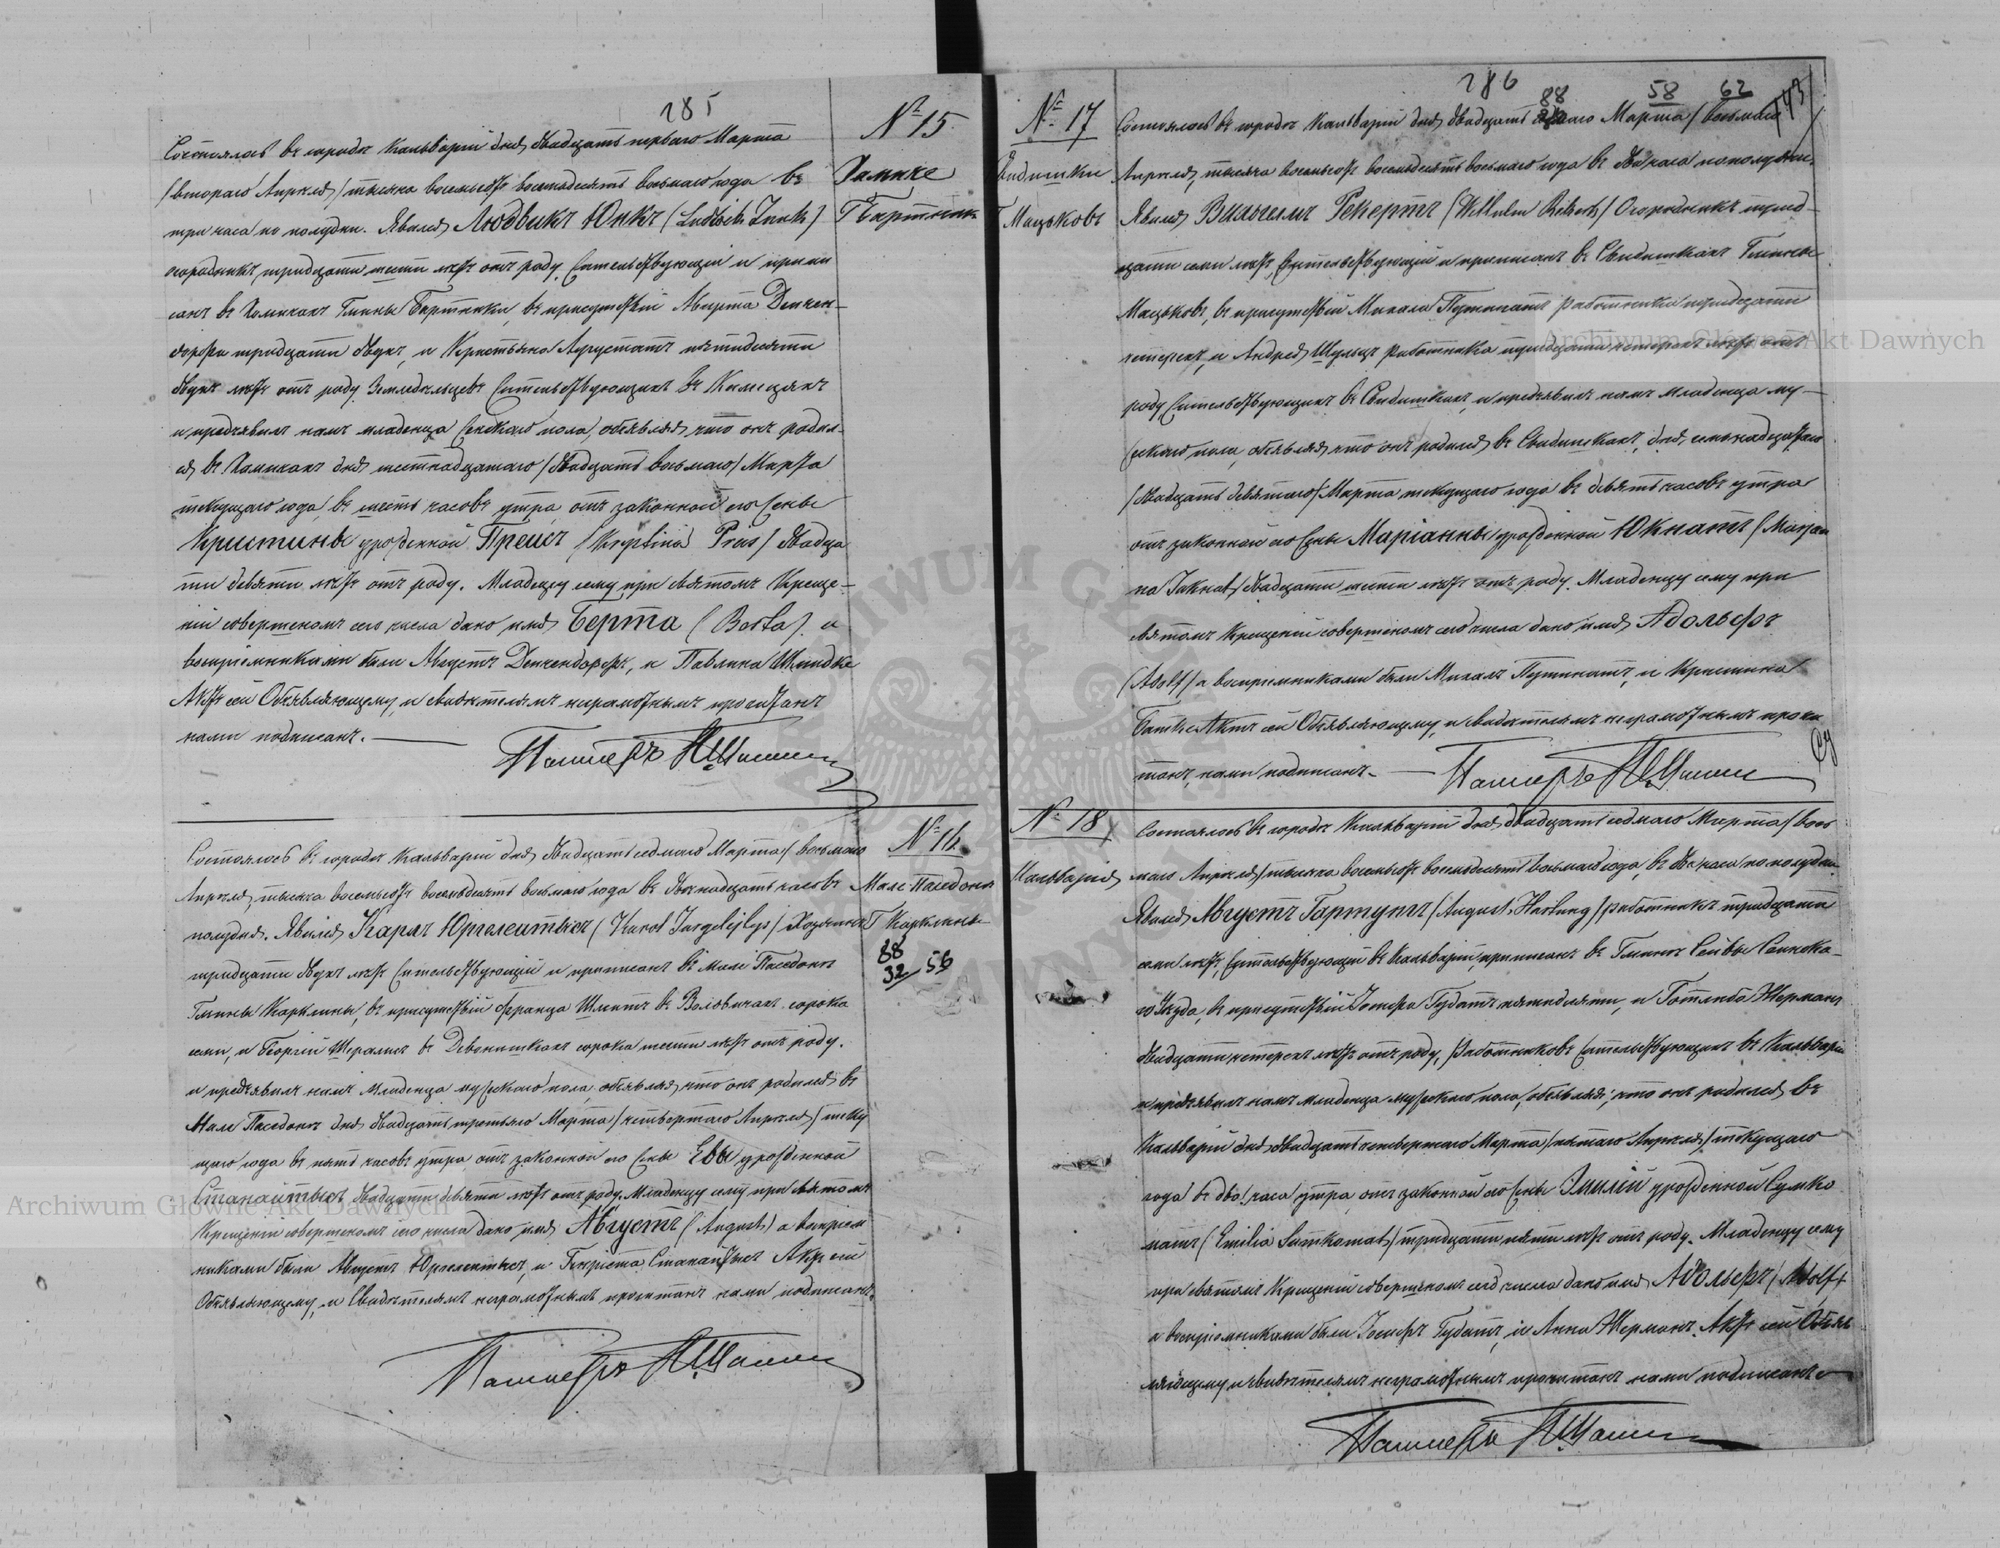 285
№ 15.
Состоялось въ городѣ Кальваріи дня двадцать перваго Марта
/втораго Апрѣля/ тысяча восемьсотъ восемьдесятъ восьмаго года въ
три часа по полудни. Явился Людвикъ Юнкъ (Ludwik Junk)
огородникъ, тридцати шести лѣтъ отъ роду, жительствующій и припи
санъ въ Хамикахъ Гмины Бартники, въ присутствіи Августа Денген-
дорфа тридцати двухъ, и Кристьяна Аугустатъ пятидесяти
двухъ лѣтъ отъ роду Земледѣльцевъ жительствующихъ въ
и предъявилъ намъ младенца женскаго пола, объявляя что онъ родил-
ся въ Хамикахъ дня шестнадцатаго /двадцать восьмаго/ Марта
текущаго года, въ шесть часовъ утра, отъ законной его жены
Кристины урожденной Прейсъ /Krystina Preis/ двадца
ти девяти лѣтъ отъ роду. Младенцу сему при святомъ Креще-
ніи совершеномъ сего числа дано имя Берта (Berta) а
воспріемниками были Августъ Денгендорфъ, и Павлина Шмидке
Актъ сей Объявляющему, и свидѣтелямъ неграмотнымъ прочитанъ
нами подписанъ.
Пасторъ
№ 16.
Мале Паседоне
Г Карклины
88
32 56
Состоялось въ городѣ Кальваріи дня двадцать седмаго Марта / восьмаго
Апрѣля, тысяча восемьсотъ восемьдесятъ восьмаго года въ двѣнадцать часовъ
полудня. Явился Карлъ Юргелейтысъ (Karol Jurgelejtys) Хозяинъ
тридцати двухъ лѣтъ жительствующій и приписанъ въ Мале Паседонѣ
Гмины Карклины, въ присутствіи Франца въ сорока
семи, и Георгій въ сорока шести лѣтъ отъ роду.
и предъявилъ намъ младенца мужскаго пола, объявляя, что онъ родился въ
Мале Паседонѣ дня двадцать третьяго Марта / четвертаго Апрѣля / теку
щаго года въ пять часовъ утра отъ законной его жены Евы урожденной
двадцати девяти лѣтъ отъ роду. Младенцу сему при святомъ
Крещеніи совершеномъ сего числа дано имя Августъ (August) а воспріем
никами были Августъ Юргелейтысъ, и Актъ сей
Объявляющему, и Свидѣтелямъ неграмотнымъ прочитанъ нами подписанъ.
Пасторъ
286
88 58 62
№ 17
Г Мацьковъ
Состоялось въ городѣ Кальваріи дня двадцать Марта / восьмаго
Апрѣля, тысяча восемьсотъ восемьдесятъ восьмаго года въ два часа пополудни.
Явился Вильгельмъ Рекертъ (Wilhelm Rekert) Огородникъ трид-
цати семи лѣтъ, жительствующій и приписанъ въ Свидишкахъ Гмины
Мацьковъ, въ присутствіи Михала Путинатъ работника тридцати
четырехъ, и Андрея Шульцъ работника тридцати четырехъ лѣтъ отъ
роду жительствующихъ въ Свидишкахъ, и предъявилъ намъ младенца му-
жскаго пола, объявляя что онъ родился въ Свидишкахъ, дня семнадцатаго
/двадцать девятаго/ Марта текущаго года въ девять часовъ утра
отъ законной его жены Маріанны урожденной Юкнатъ / Marjan
na Juknat / двадцати шести лѣтъ отъ роду. Младенцу сему при
святомъ Крещеніи совершеномъ сего числа дано имя Адольфъ
(Adolf) а воспріемниками были Михалъ Путинатъ, и Кристина
Актъ сей Объявляющему, и свидѣтелямъ неграмотнымъ прочи
танъ, нами подписанъ.
Пасторъ
№ 18
Кальварія
Состоялось въ городѣ Кальваріи дня двадцать седмаго Марта / вось
маго Апрѣля / тысяча восемьсотъ восемьдесятъ восьмаго года, въ два часа по полудни.
Явился Августъ Гартунгъ / August Hartung / работникъ тридцати
семи лѣтъ, жительствующій въ Кальваріи, приписанъ въ Гминѣ
уѣзда, въ присутствіи Іосифа Гудатъ пятидесяти, и Готлиба Жерманъ
двадцати четырехъ лѣтъ отъ роду, работниковъ жительствующихъ въ Кальваріи
и предъявилъ намъ младенца мужскаго пола, объявляя; что онъ родился въ
Кальваріи дня двадцать четвертаго Марта / пятаго Апрѣля / текущаго
года въ два часа утра, отъ законной его жены Эмиліи урожденной Сумко
натъ (Emilia Sumkomat) тридцати пяти лѣтъ отъ роду. Младенцу сему
при святомъ Крещеніи совершеномъ сего числа дано имя Адольфъ / Adolf /
а воспріемниками были Іосифъ Гудатъ, и Анна Жерманъ. Актъ сей Объяв
ляющему и свидѣтелямъ неграмотнымъ прочитанъ нами подписанъ
Пасторъ
Archiwum Główne Akt Dawnych
Archiwum Główne Akt Dawnych